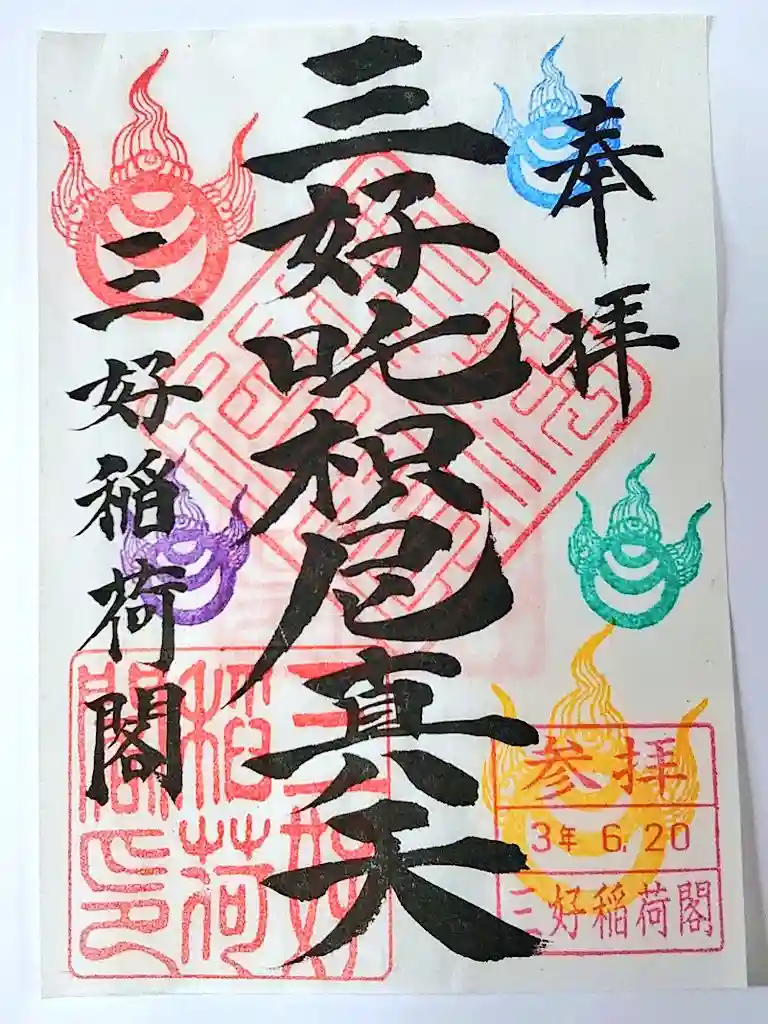 奉拝
三好吒枳尼真天
三好稲荷閣
三好
稲荷
閣印
参拝
3年 6.20
三好稲荷閣